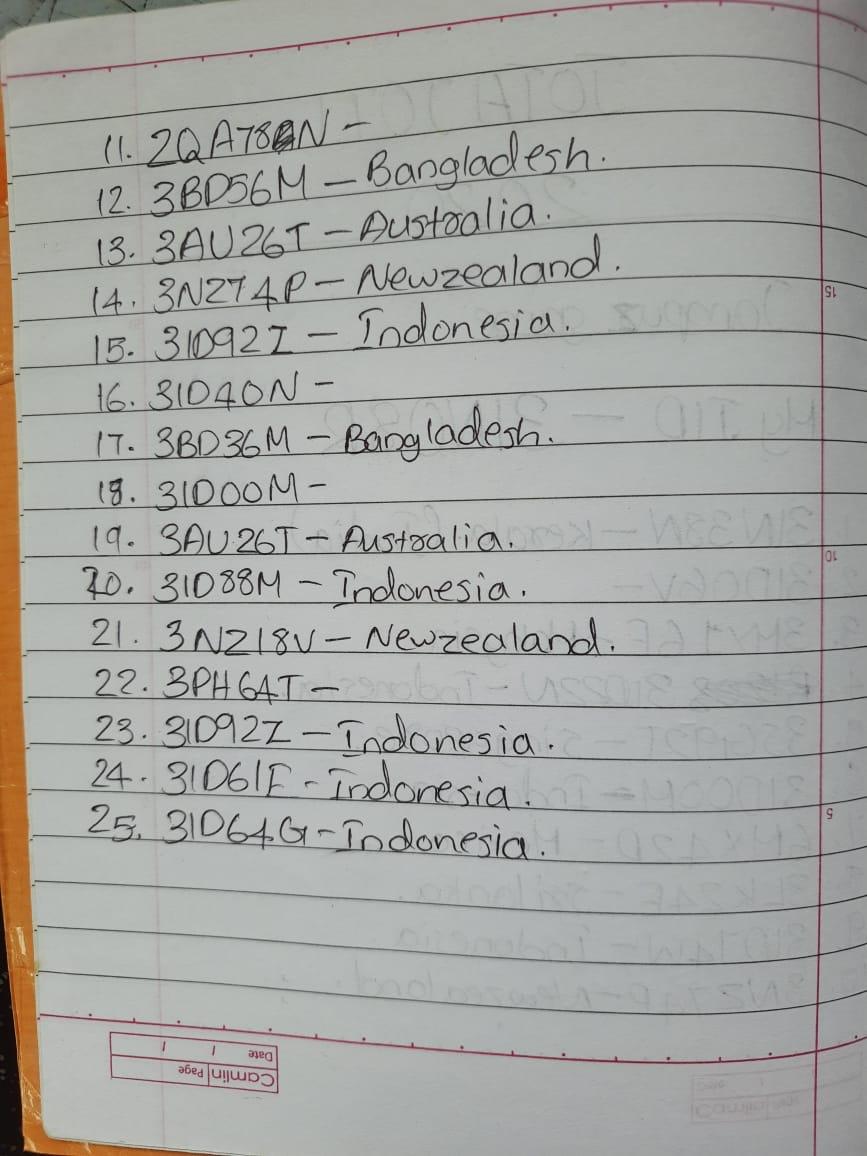 11. 2QA78N -
12. 3BD56M - Bangladesh.
13. 3AU26T - Australia.
14. 3NZ74P - Newzealand.
15. 3ID92Z - Indonesia.
16. 3ID40N -
17. 3BD36M - Bangladesh.
18. 3ID00M -
19. 3AU26T - Australia.
20. 3ID88M - Indonesia.
21. 3NZ18V - Newzealand.
22. 3PH64T -
23. 3ID92Z - Indonesia.
24. 3ID61F - Indonesia.
25. 3ID64G - Indonesia.
15
10
5
Camlin Page
Date / /